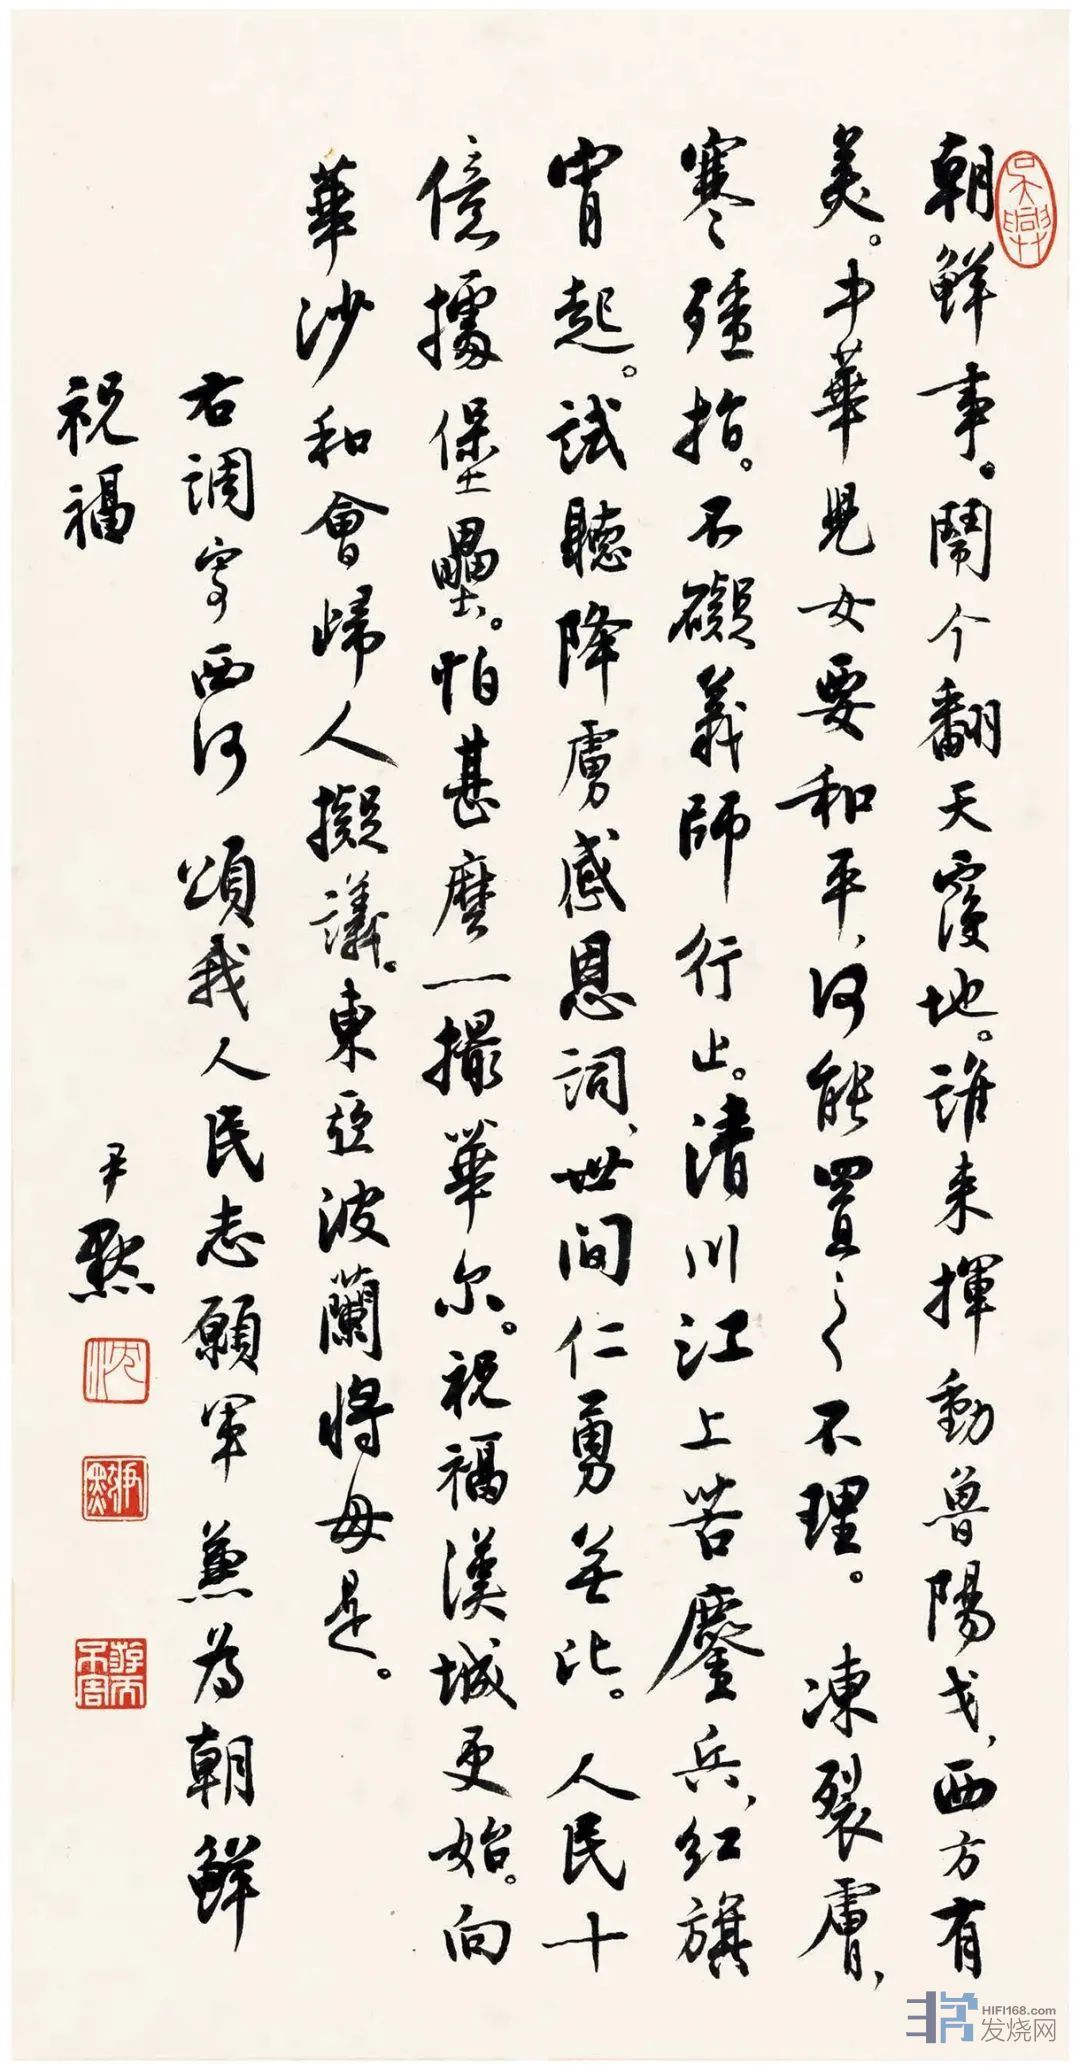 朝鮮事。鬧个翻天覆地。誰来揮動魯陽戈、西方有
美。中華兒女要和平、何能置之不理。凍裂膚、
寒殭指。不礙義師行止。清川江上苦鏖兵、紅旗
宵起。試聽降虜感恩詞、世间仁勇無比。人民十
億擄堡壘。怕甚麼一撮華尔。祝福漢城更始。向
華沙和會歸人擬議。東亞波蘭将毋是。
右調寄西河 頌我人民志願軍兼為朝鮮
祝福
尹默
沈
尹默
HIFI168.com
发烧网